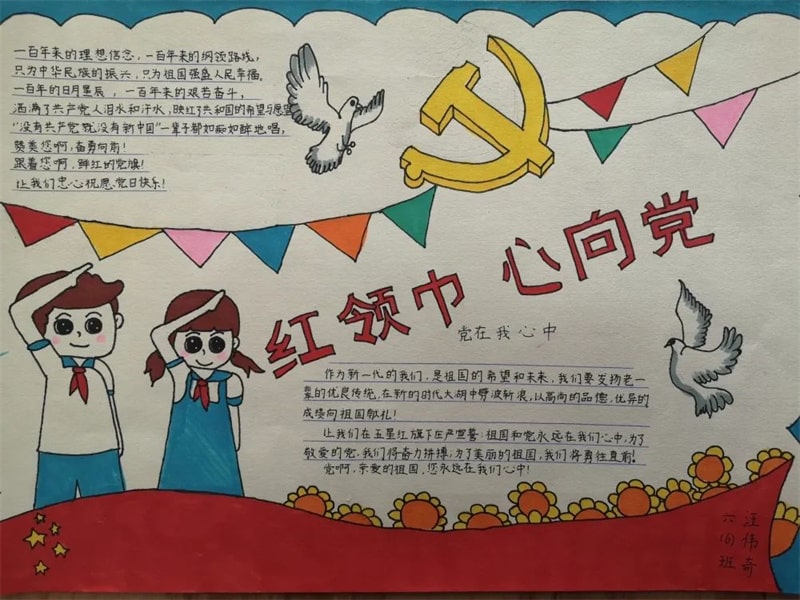 一百年来的理想信念，一百年来的纲领路线，
只为中华民族的振兴，只为祖国强盛人民幸福。
一百年的日月星辰，一百年来的艰苦奋斗，
洒满了共产党人泪水和汗水，映红了共和国的希望与愿望
“没有共产党就没有新中国”一辈子都如痴如醉地唱，
赞美您啊，奋勇向前！
跟着您啊，鲜红的党旗！
让我们忠心祝愿党日快乐！
红领巾 心向党
党在我心中
作为新一代的我们，是祖国的希望和未来，我们要发扬老一
辈的优良传统，在新的时代大湖中劈波斩浪，以高尚的品德，优异的
成绩向祖国献礼！
让我们在五星红旗下庄严宣誓：祖国和党永远在我们心中，为了
敬爱的党，我们将奋力拼搏，为了美丽的祖国，我们将勇往直前！
党啊，亲爱的祖国，您永远在我们心中！
六(6)班
汪伟奇